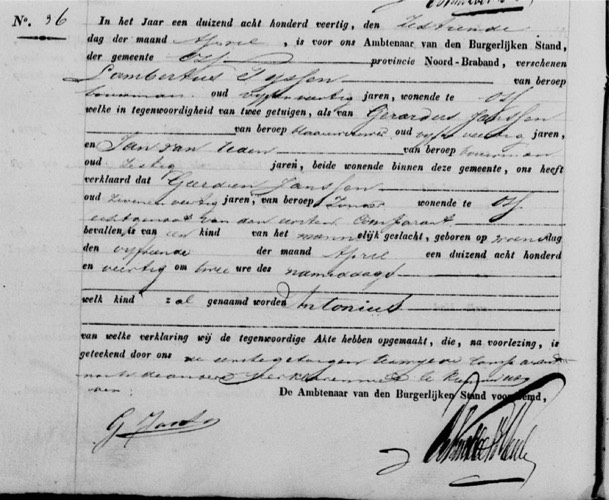 N.º 36 In het Jaar een duizend acht honderd veertig, den Zestiende
dag der maand April, is voor ons Ambtenaar van den Burgerlijken Stand,
der gemeente Oss provincie Noord-Braband, verschenen
Lambertus Tijssen van beroep
bouwman oud vijfenveertig jaren, wonende te Oss
welke in tegenwoordigheid van twee getuigen, als van Gerardus Janssen
van beroep oud jaren,
en Jan van Uden van beroep bouwman
oud zestig jaren, beide wonende binnen deze gemeente, ons heeft
verklaard dat Gerdien Janssen
oud zevenenveertig jaren, van beroep zonder wonende te Oss
echtgenoot van den eersten Comparant
bevallen is van een kind van het mannelijk geslacht, geboren op woensdag
den vijftiende der maand April een duizend acht honderd
en veertig om twee ure des namiddags
welk kind zal genaamd worden Antonius
van welke verklaring wij de tegenwoordige Akte hebben opgemaakt, die, na voorlezing, is
geteekend door ons de eerste getuigen Comparant
te kunnen
De Ambtenaar van den Burgerlijken Stand voornoemd,
G Jans